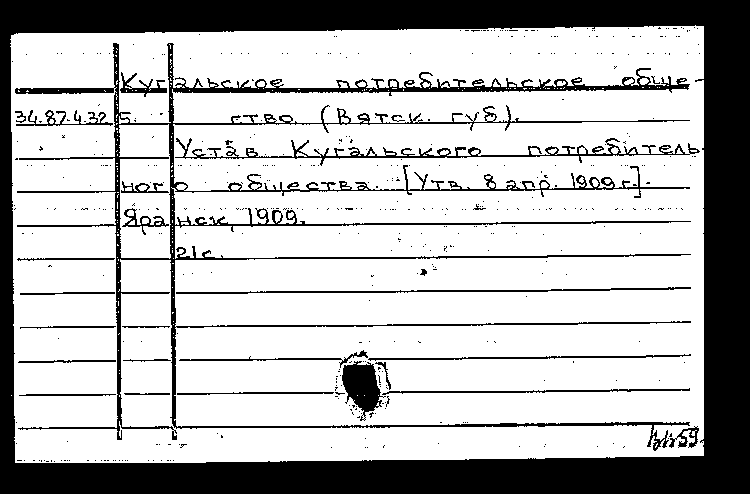 Кугальское потребительское обще-
34.87.4.325. ство (Вятск. губ).
Устав Кугальского потребитель-
ного общества. [Утв. 8 апр. 1909 г.].
Яранск, 1909.
21 с.
59.